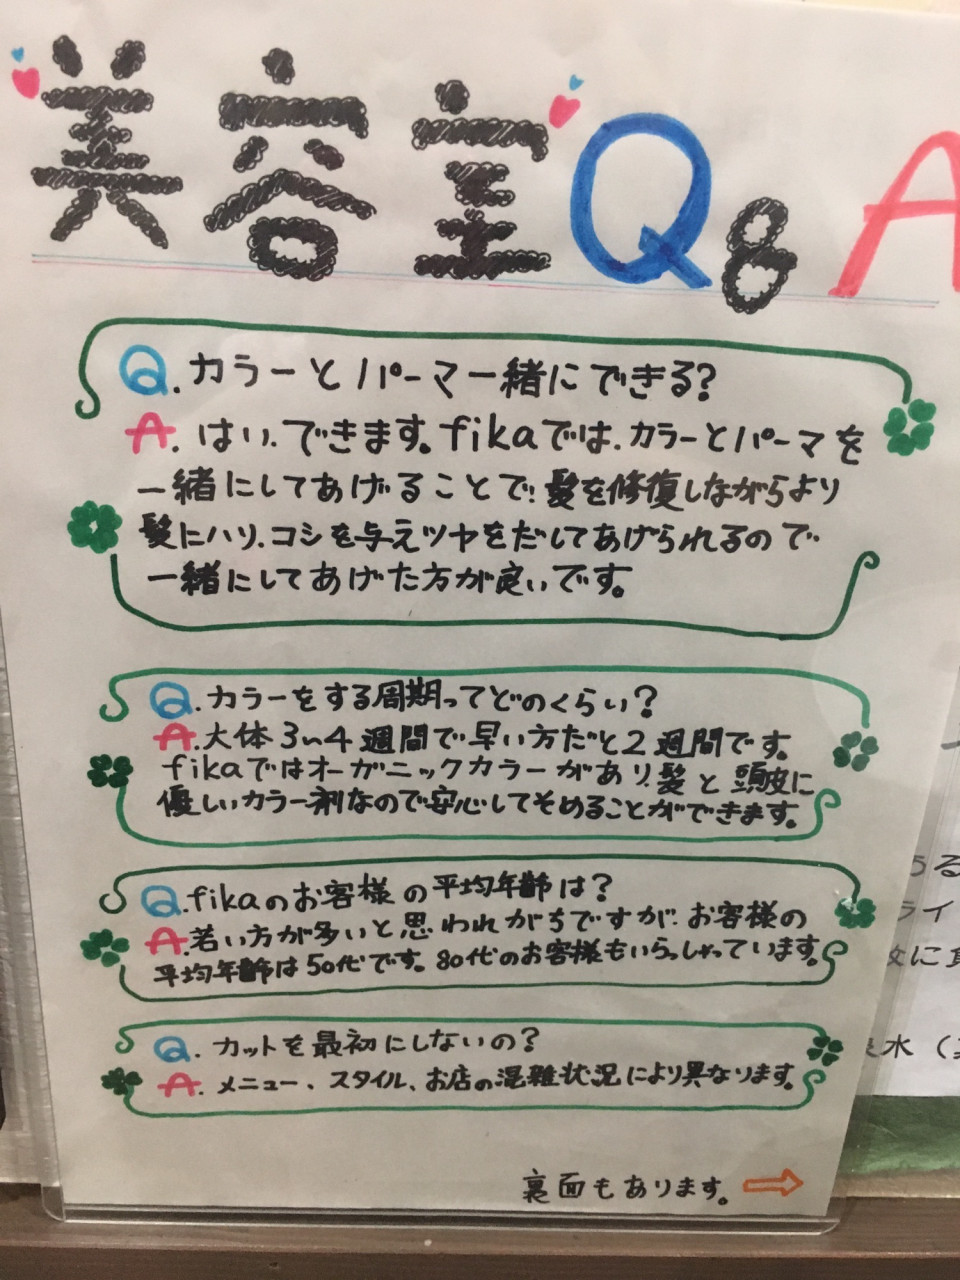 美容室Q&A
Q.カラーとパーマ一緒にできる?
A.はい、できます。fikaでは、カラーとパーマを
一緒にしてあげることで、髪を修復しながらより
髪にハリ、コシを与えツヤをだしてあげられるので
一緒にしてあげた方が良いです。
Q.カラーをする周期ってどのくらい?
A.大体3〜4週間で早い方だと2週間です。
fikaではオーガニックカラーがあり、髪と頭皮に
優しいカラー剤なので安心してそめることができます。
Q.fikaのお客様の平均年齢は?
A.若い方が多いと思われがちですが、お客様の
平均年齢は50代です。80代のお客様もいらっしゃっています。
Q.カットを最初にしないの?
A.メニュー、スタイル、お店の混雑状況により異なります。
裏面もあります。⇒
うる
ライ
に
水(